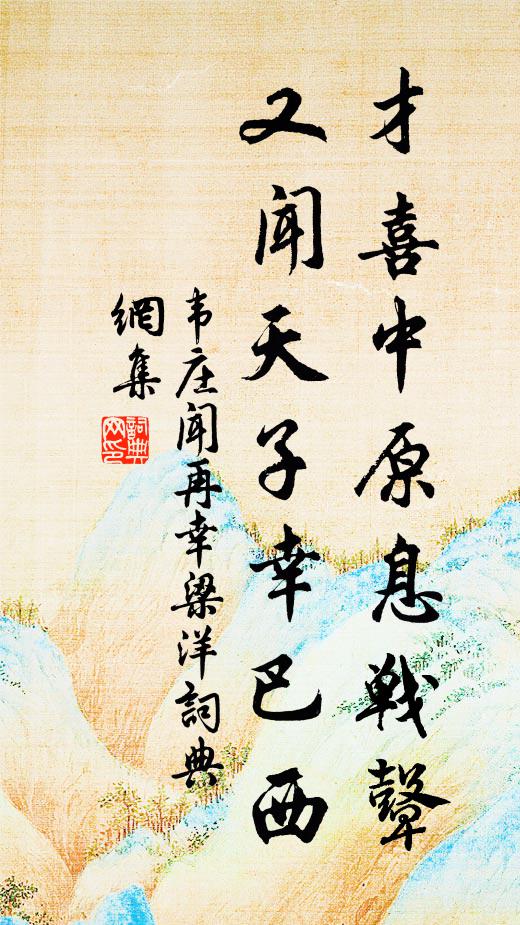 才喜中原息戰鼙
又闻天子幸巴西
韦庄闻再幸梁洋詞典
網集
詞典
网印